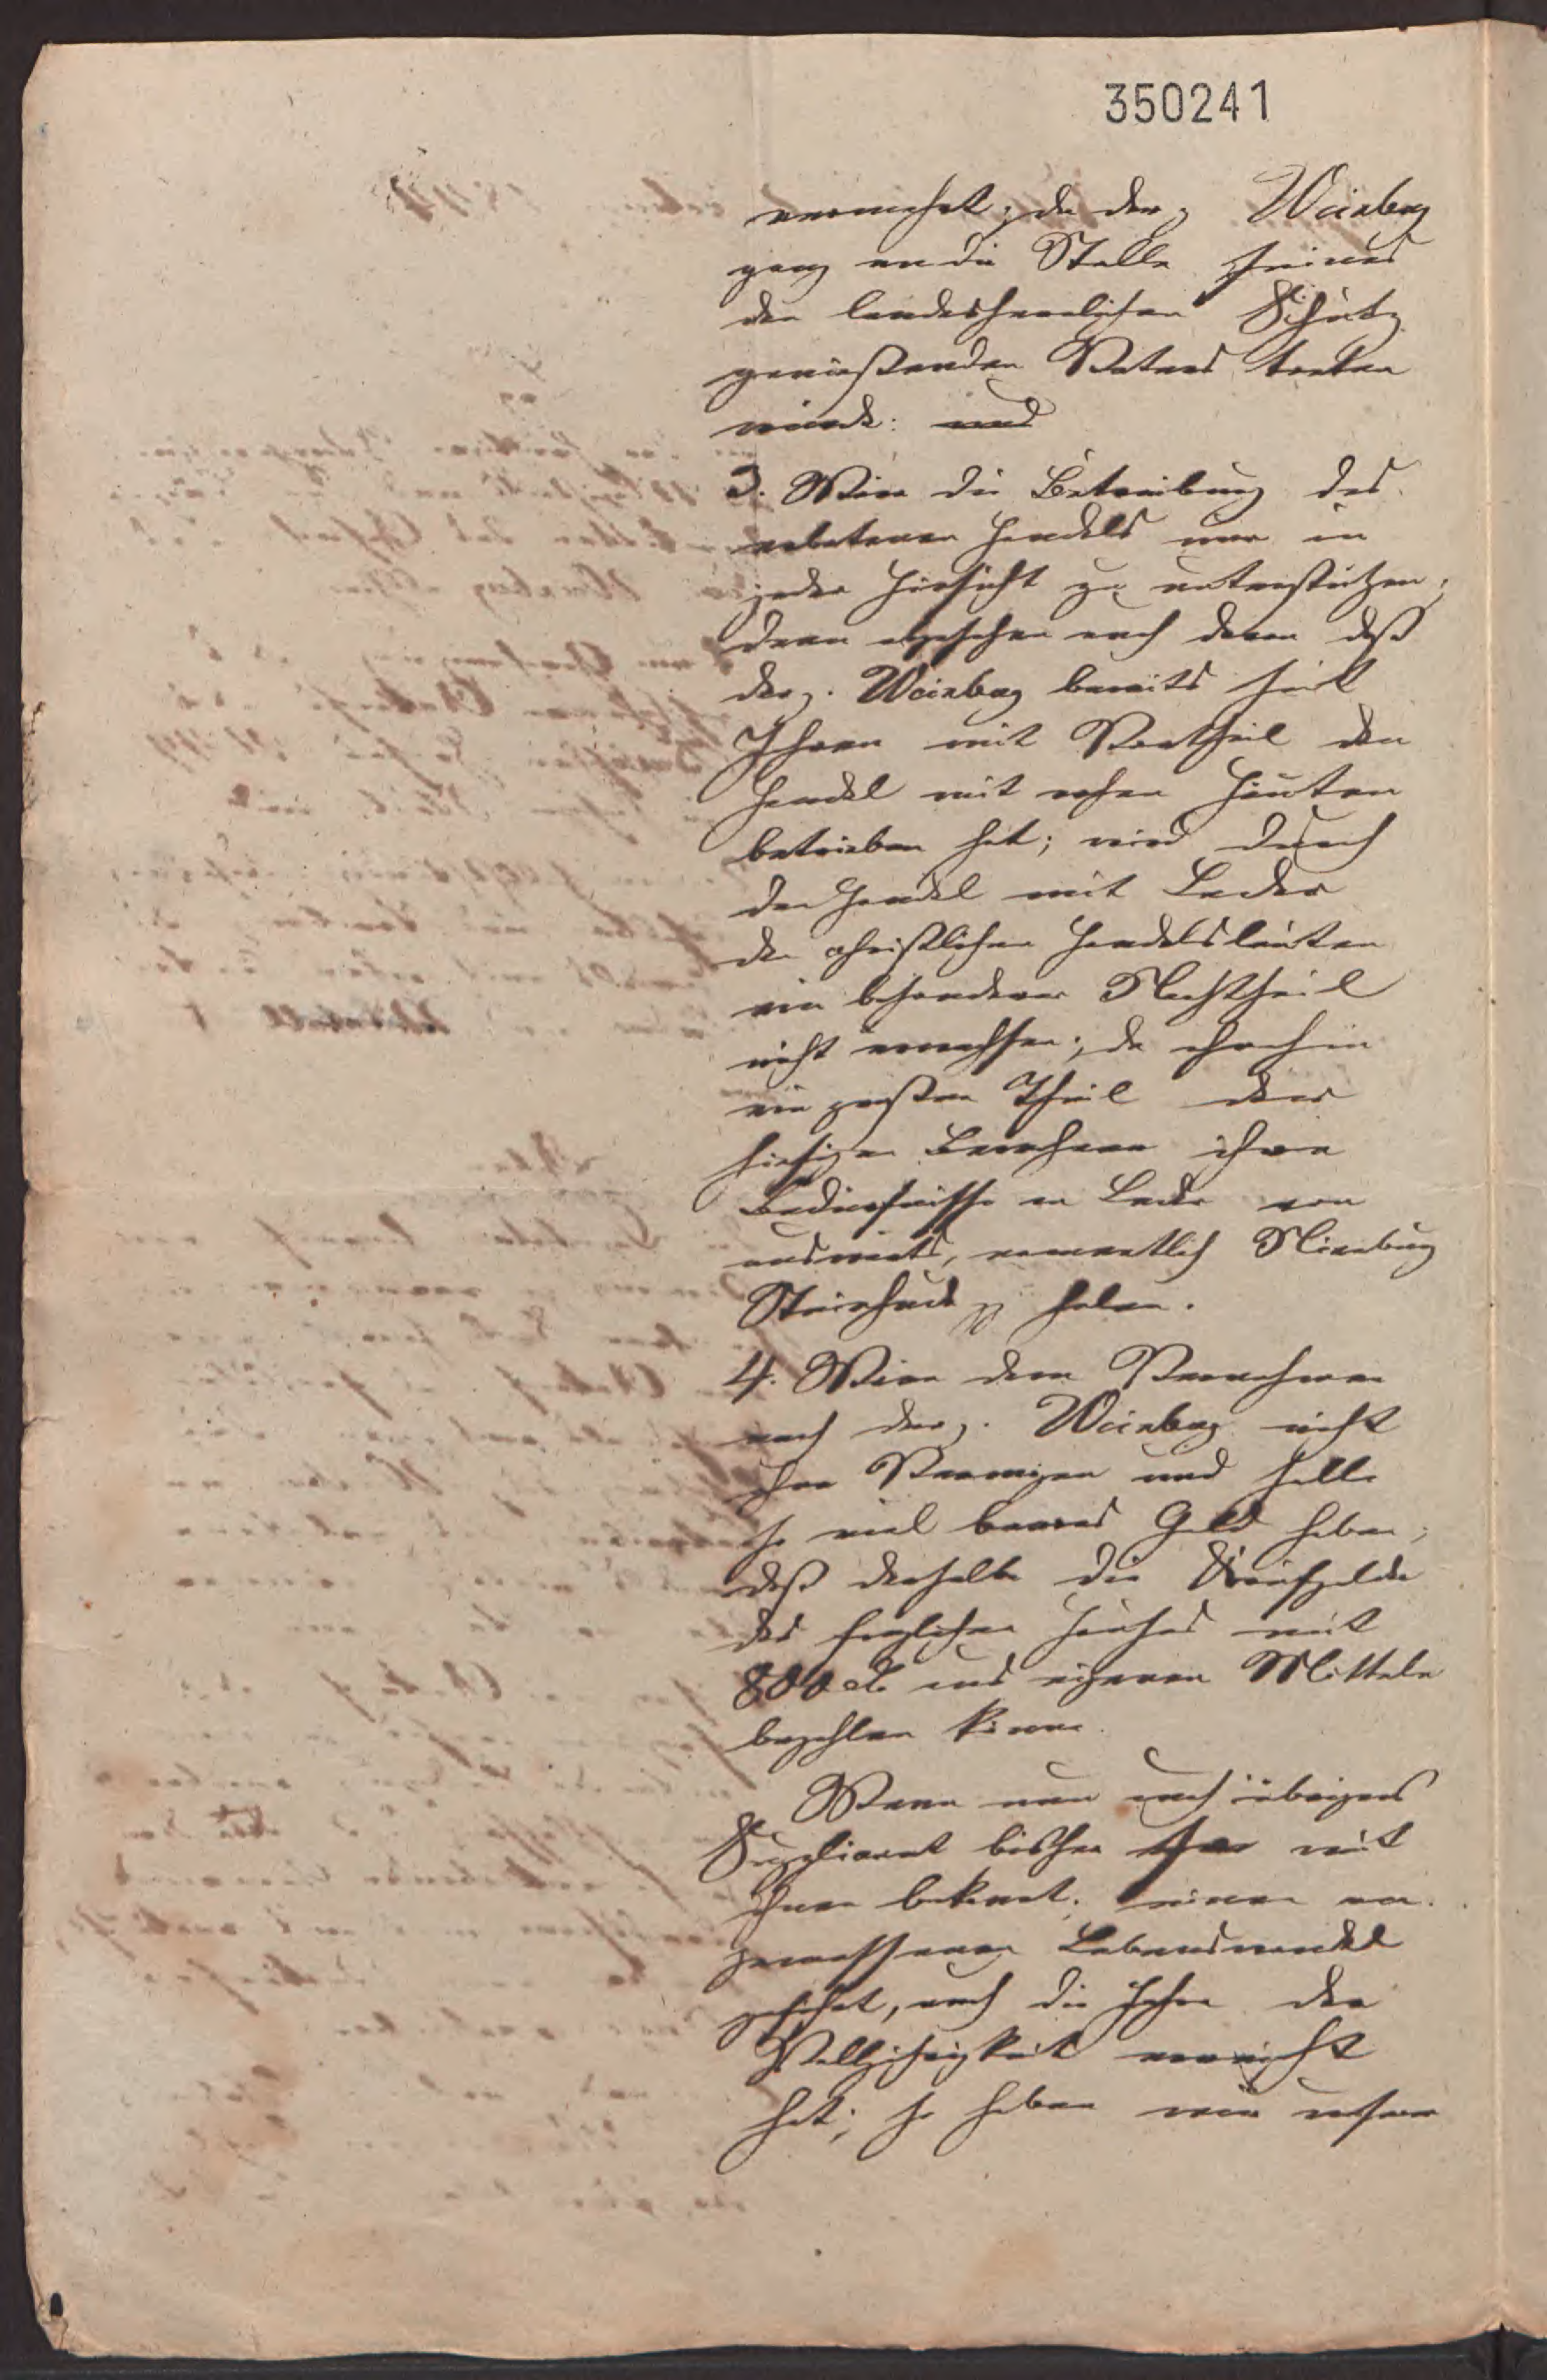 350241
vermehrt; da der p. Weinberg
ganz an die Stelle seines
den landesherrlichen Schutz
genießenden Vaters treten
würde: und
3. Wäre die Betreibung des
erbetenen Handels nur in
jeder Hinsicht zu unterstützen;
denn abgesehen auch davon daß
der p. Weinberg bereits seit
Jahren mit Vortheil den
Handel mit rohen Häuten
betrieben hat; wird durch
den Handel mit Leder
den christlichen Handelsleuten
ein besonderer Nachtheil
nicht erwachsen; da ohnehin
ein großer Theil der
hiesigen Bewohner ihre
Bedürfnisse an Leder von
auswärts, namentlich Nienburg
Steinhude pp holen.
4. Wäre dem Vernehmen
nach der p. Weinberg nicht
ohne Vermögen und solle
so viel baares Geld haben,
daß derselbe die Kaufgelder
des fraglichen Hauses mit
800 aus eigenen Mitteln
bezahlen könne.
Wenn nun auch übrigens
Supplicant bisher so viel
ihnen bekannt, einen an-
gemessenen Lebenswandel
geführt, auch die Jahre der
Volljährigkeit erreicht
hat; so haben wir unsern